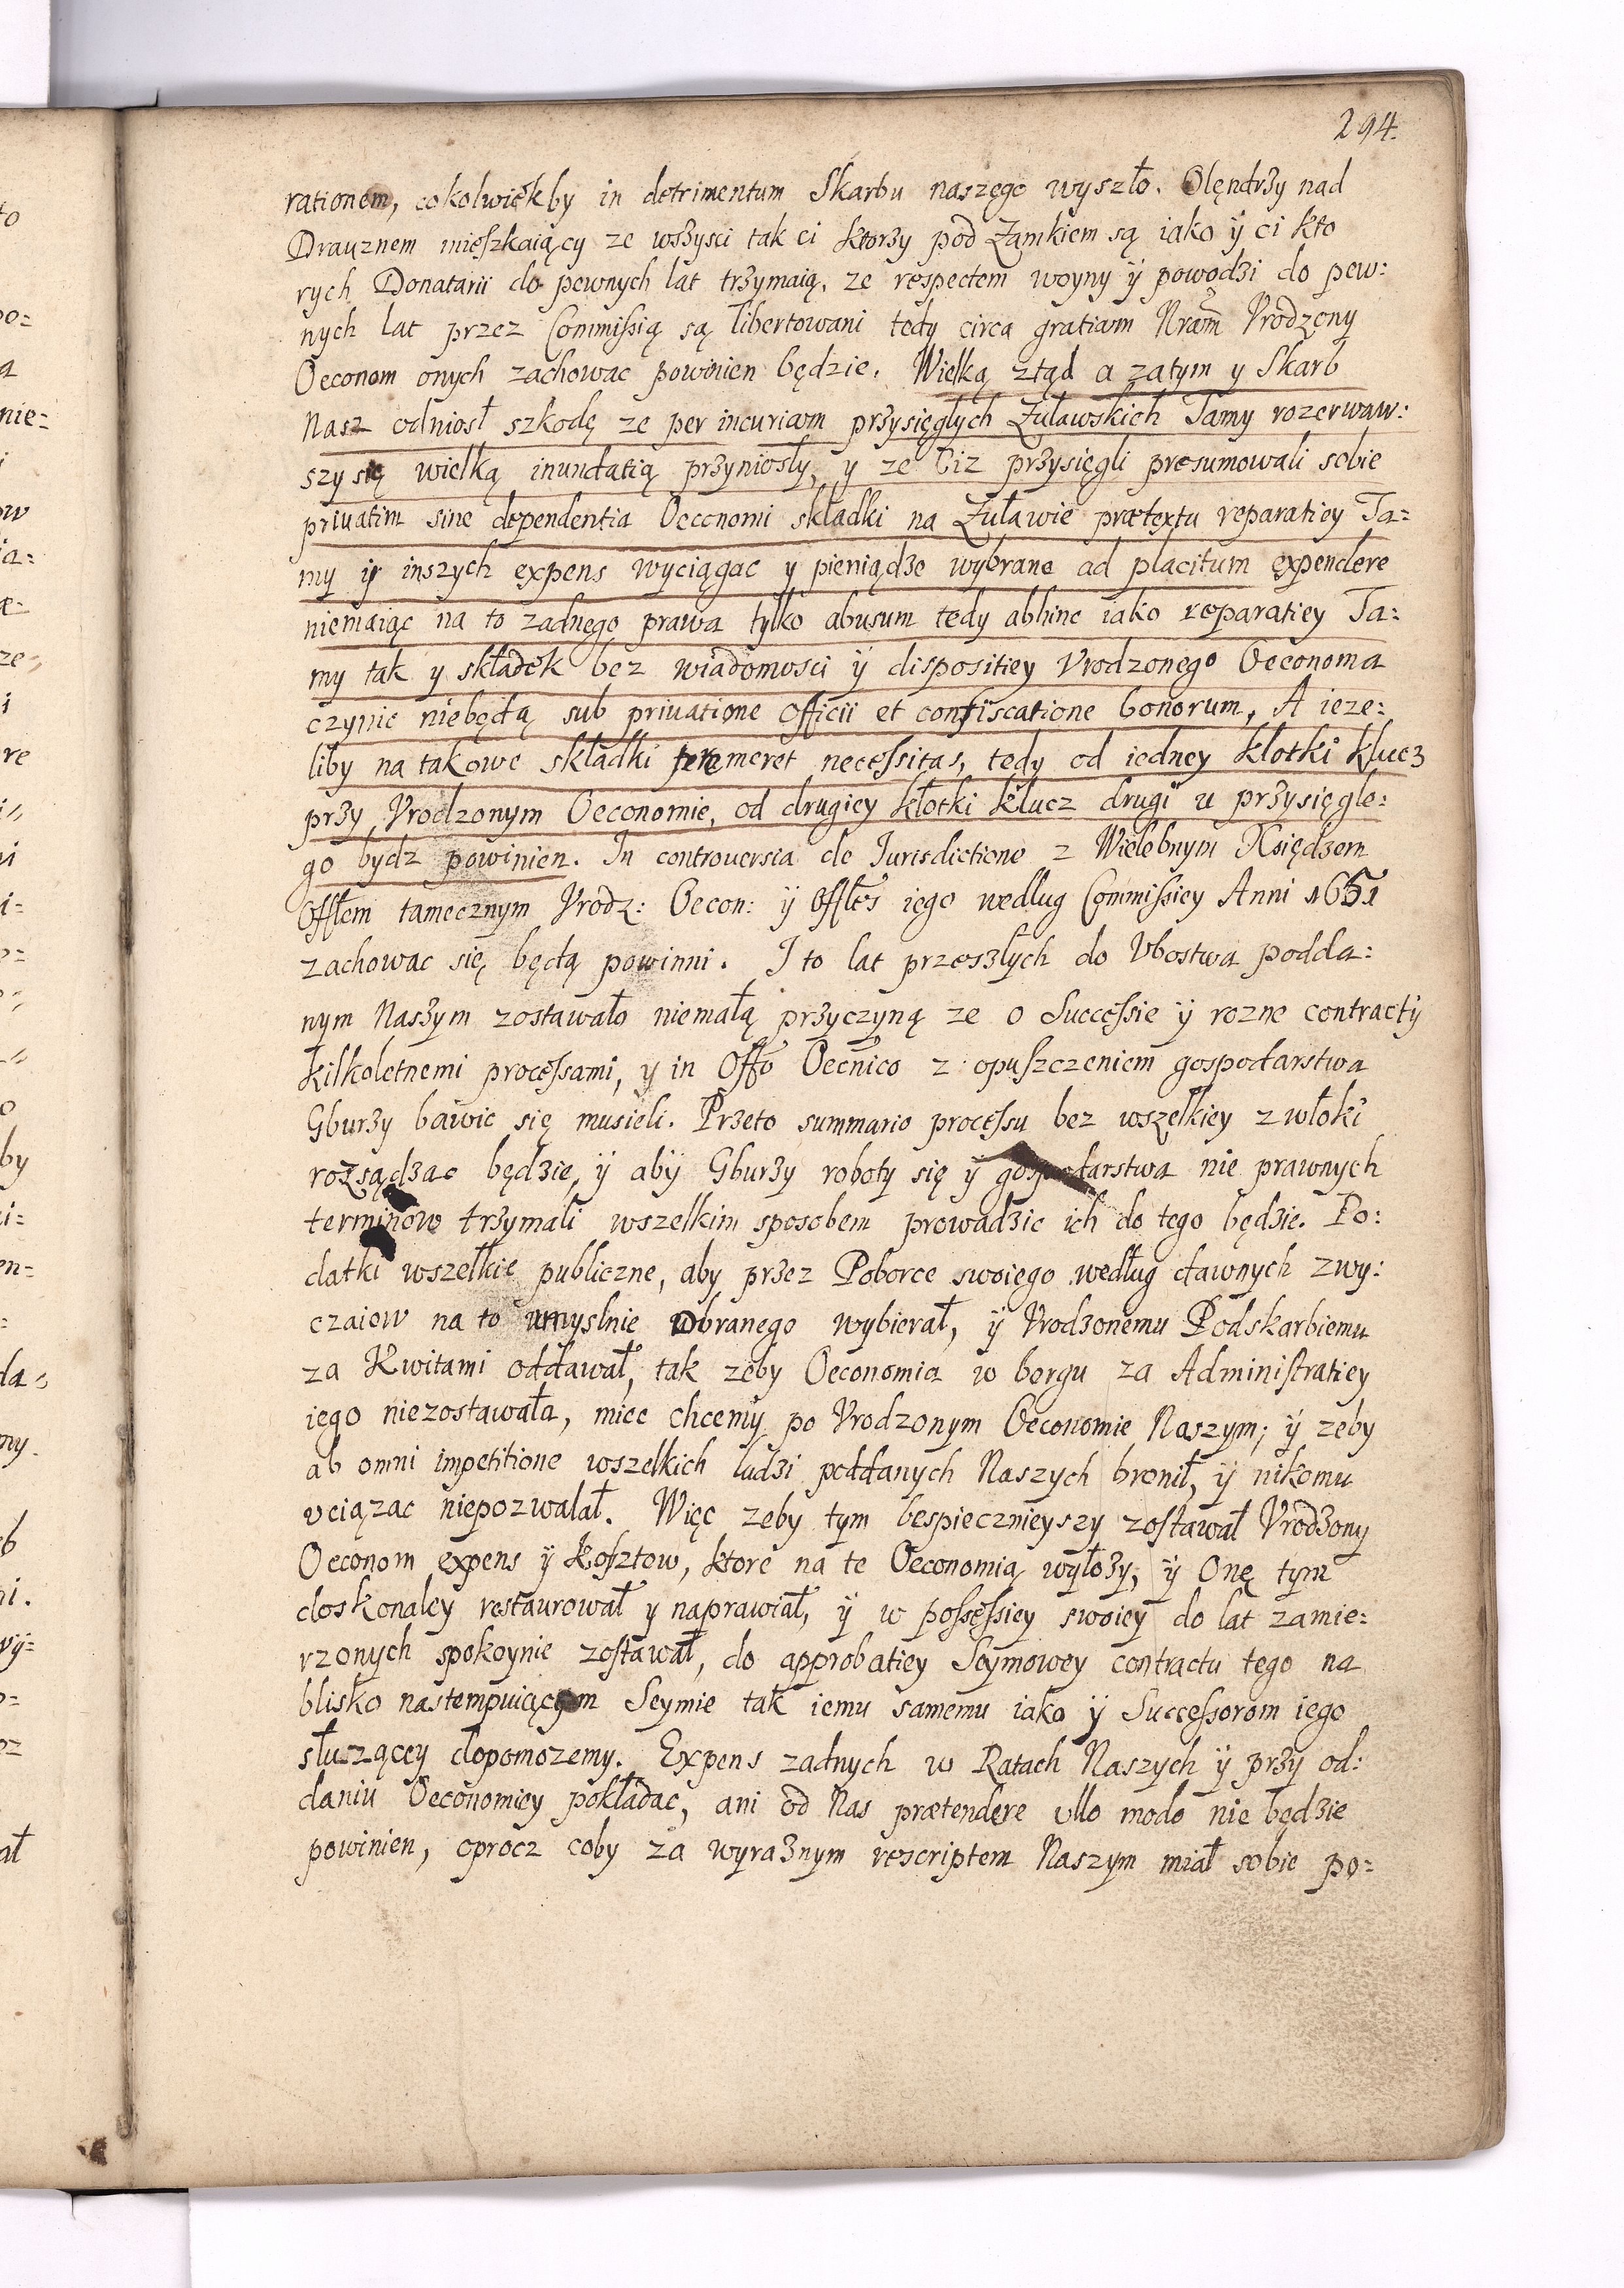 294.
rationem, cokolwiekby in detrimentum Skarbu naszego wyszło. Olęndrzy nad
Drauznem mięszkaiący ze wszysci tak ci ktorzy pod Zamkiem są iako ÿ ci kto
rych Donatarii do pewnych lat trzymaią, ze respectem woyny ÿ powodzi do pew:
nych lat przez Commissią są libertowani tedy circa gratiam Nram Vrodzony
Oeconom onych zachowac powinien będzie. Wielką ztąd a zatym y Skarb
Nasz odniosł szkodę ze per incuriam przysięglych Zuławskich Tamy rozerwaw:
szy się wielką inundatią przyniosły, y ze Ciz przysięgli presumowali sobie
priuatim sine dependentia Oeconomi składki na Zuławie prætextu reparatiey Ta=
my ÿ inszych expens wyciągac y pieniądze wybrane ad placitum expendere
niemaiąc na to zadnego prawa tylko abusum tedy abhinc iako reparatiey Ta:
my tak y składek bez wiadomosci ÿ dispositiey Vrodzonego Oeconoma
czynic niebędą sub priuatione Officii et confiscatione bonorum, A ieze:
liby na takowe składki premeret necessitas, tedy od iedney kłotki klucz
przy Vrodzonym Oeconomie, od drugiey kłotki klucz drugi u przysięgle:
go bydz powinien. In controuersia de Jurisdictione z Wielebnym Xsiędzem
Offłem tamecznym Vrodz: Oecon: ÿ Offłes iego według Commissiey Anni 1651
zachowac się będą powinni. I to lat przeszłych do Vbostwa podda:
nym Naszym zostawało niemałą przyczyną ze o Successie ÿ rozne contracty
kilkoletnemi processami, y in Offo Oecnico z opuszczeniem gospodarstwa
Gburzy bawic się musieli. Przeto summario processu bez wszelkiey zwłoki
rozsądzac będzie, ÿ abÿ Gburzy roboty się ÿ gospodarstwa nie prawnych
terminow trzymali wszelkim sposobem prowadzic ich do tego będzie. Po:
datki wszelkie publiczne, aby przez Poborce swoiego według dawnych zwy:
czaiow na to umyslnie obranego wybierał, ÿ Vrodzonemu Podskarbiemu
za Kwitami oddawał, tak zeby Oeconomia w borgu za Administratiey
iego niezostawała, miec chcemy po Vrodzonym Oeconomie Naszym; ÿ zeby
ab omni impetitione wszelkich ludzi poddanych Naszych bronił, ÿ nikomu
vciązac niepozwalał. Więc zeby tym bespiecznieyszy zostawał Vrodzony
Oeconom expens ÿ Kosztow, ktore na te Oeconomią wyłozy, ÿ Onę tym
doskonaley restaurował y naprawiał, ÿ w possessiey swoiey do lat zamie:
rzonych spokoynie zostawał, do approbatiey Seymowey contractu tego na
blisko nastempuiącym Seymie tak iemu samemu iako ÿ Successorom iego
słuzącey dopomozemy. Expens zadnych w Ratach Naszych ÿ przy od:
daniu Oeconomiey pokładac, ani od Nas prætendere vllo modo nie będzie
powinien, oprocz coby za wyraznym rescriptem Naszym miał sobie po: